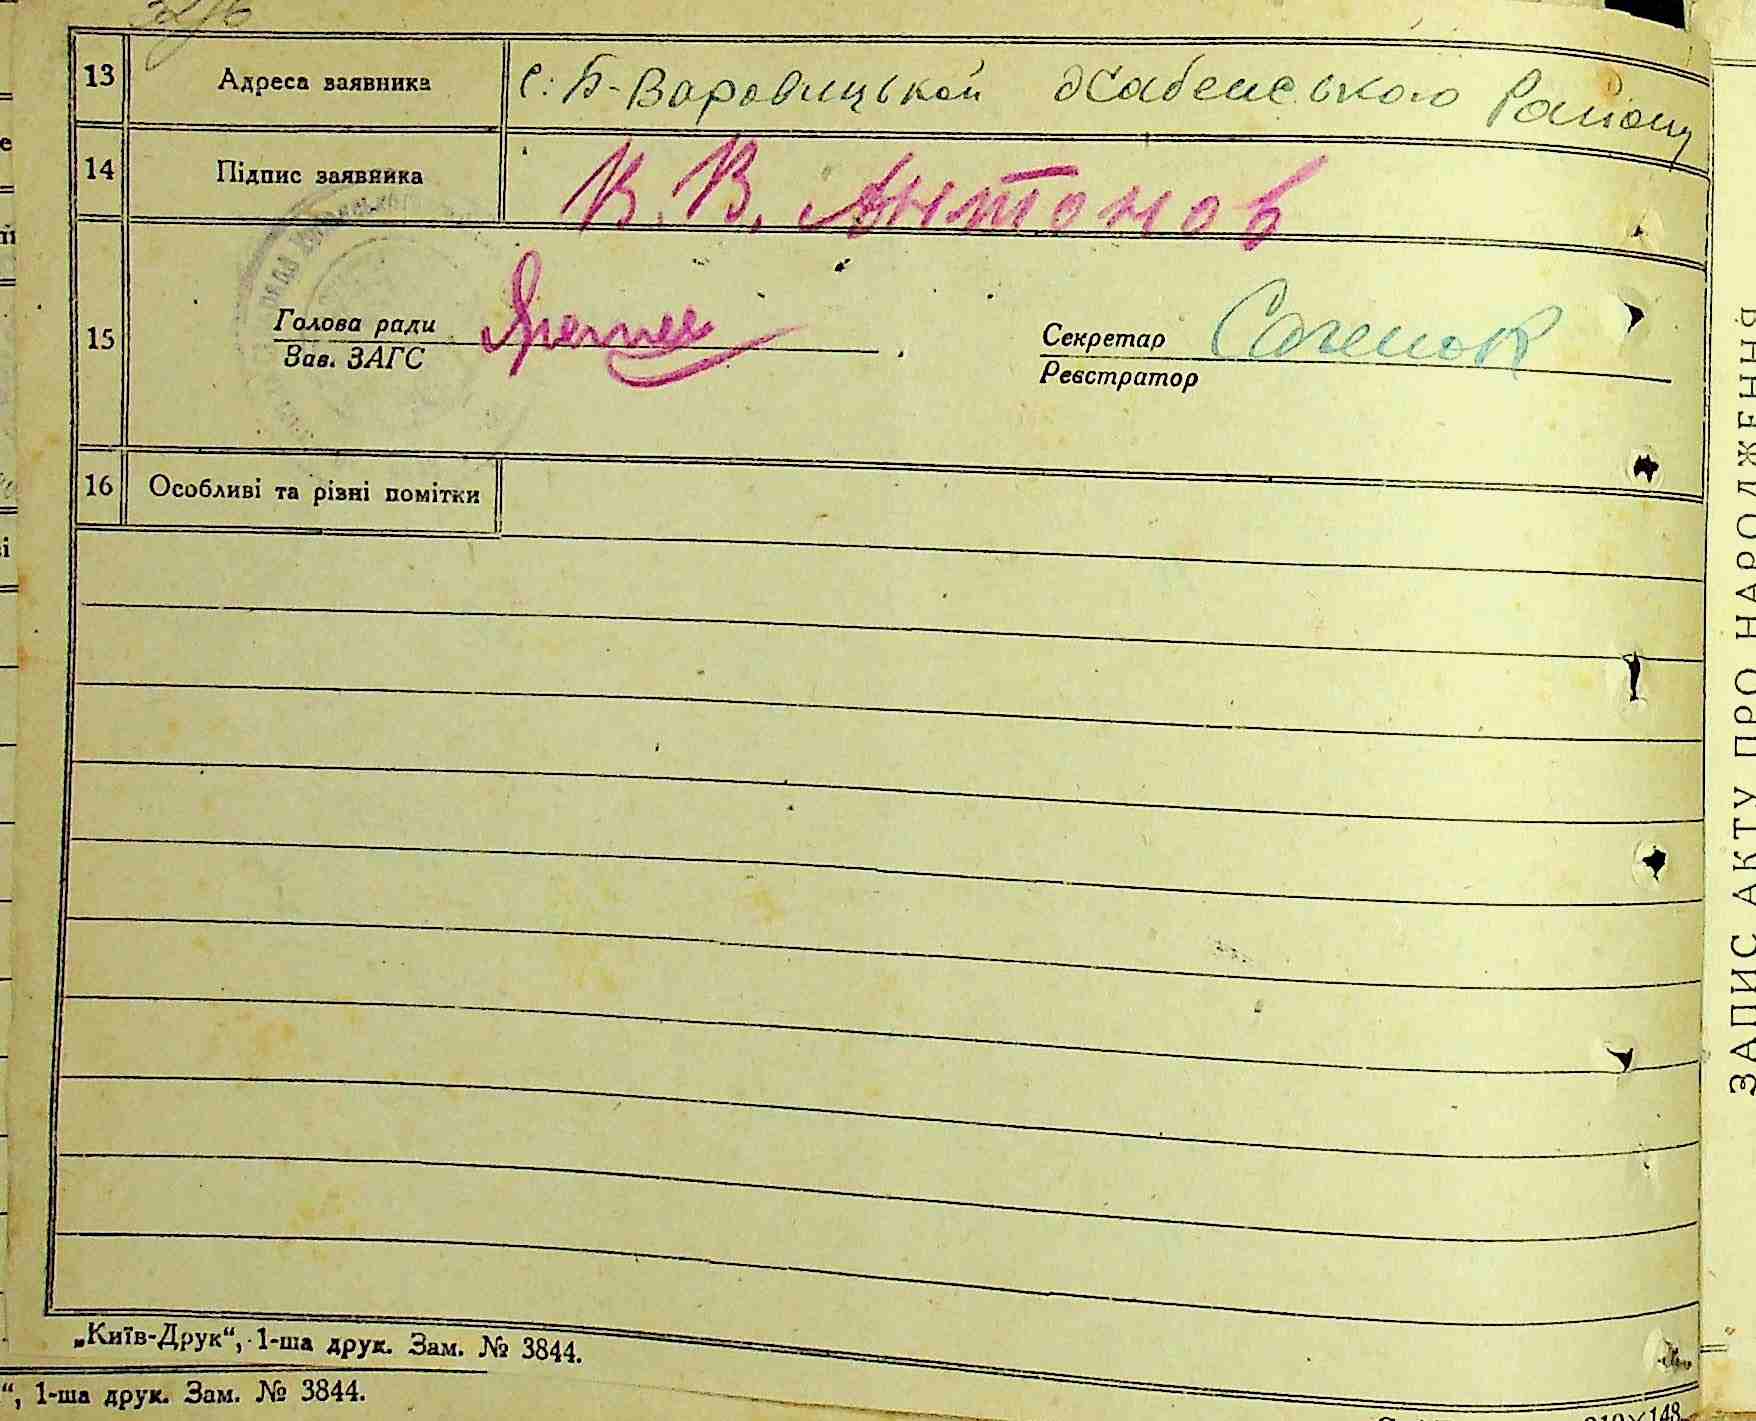 13 Адреса заявника с. Б-Варовицької Хабенського Району
14 Підпис заявника В. В. Антонов
15 Голова ради
Зав. ЗАГС
Секретар
Реєстратор
16 Особливі та різні помітки
„Київ-Друк“, 1-ша друк. Зам. № 3844.
“, 1-ша друк. Зам. № 3844.
ЗАПИС АКТУ ПРО НАРОДЖЕННЯ